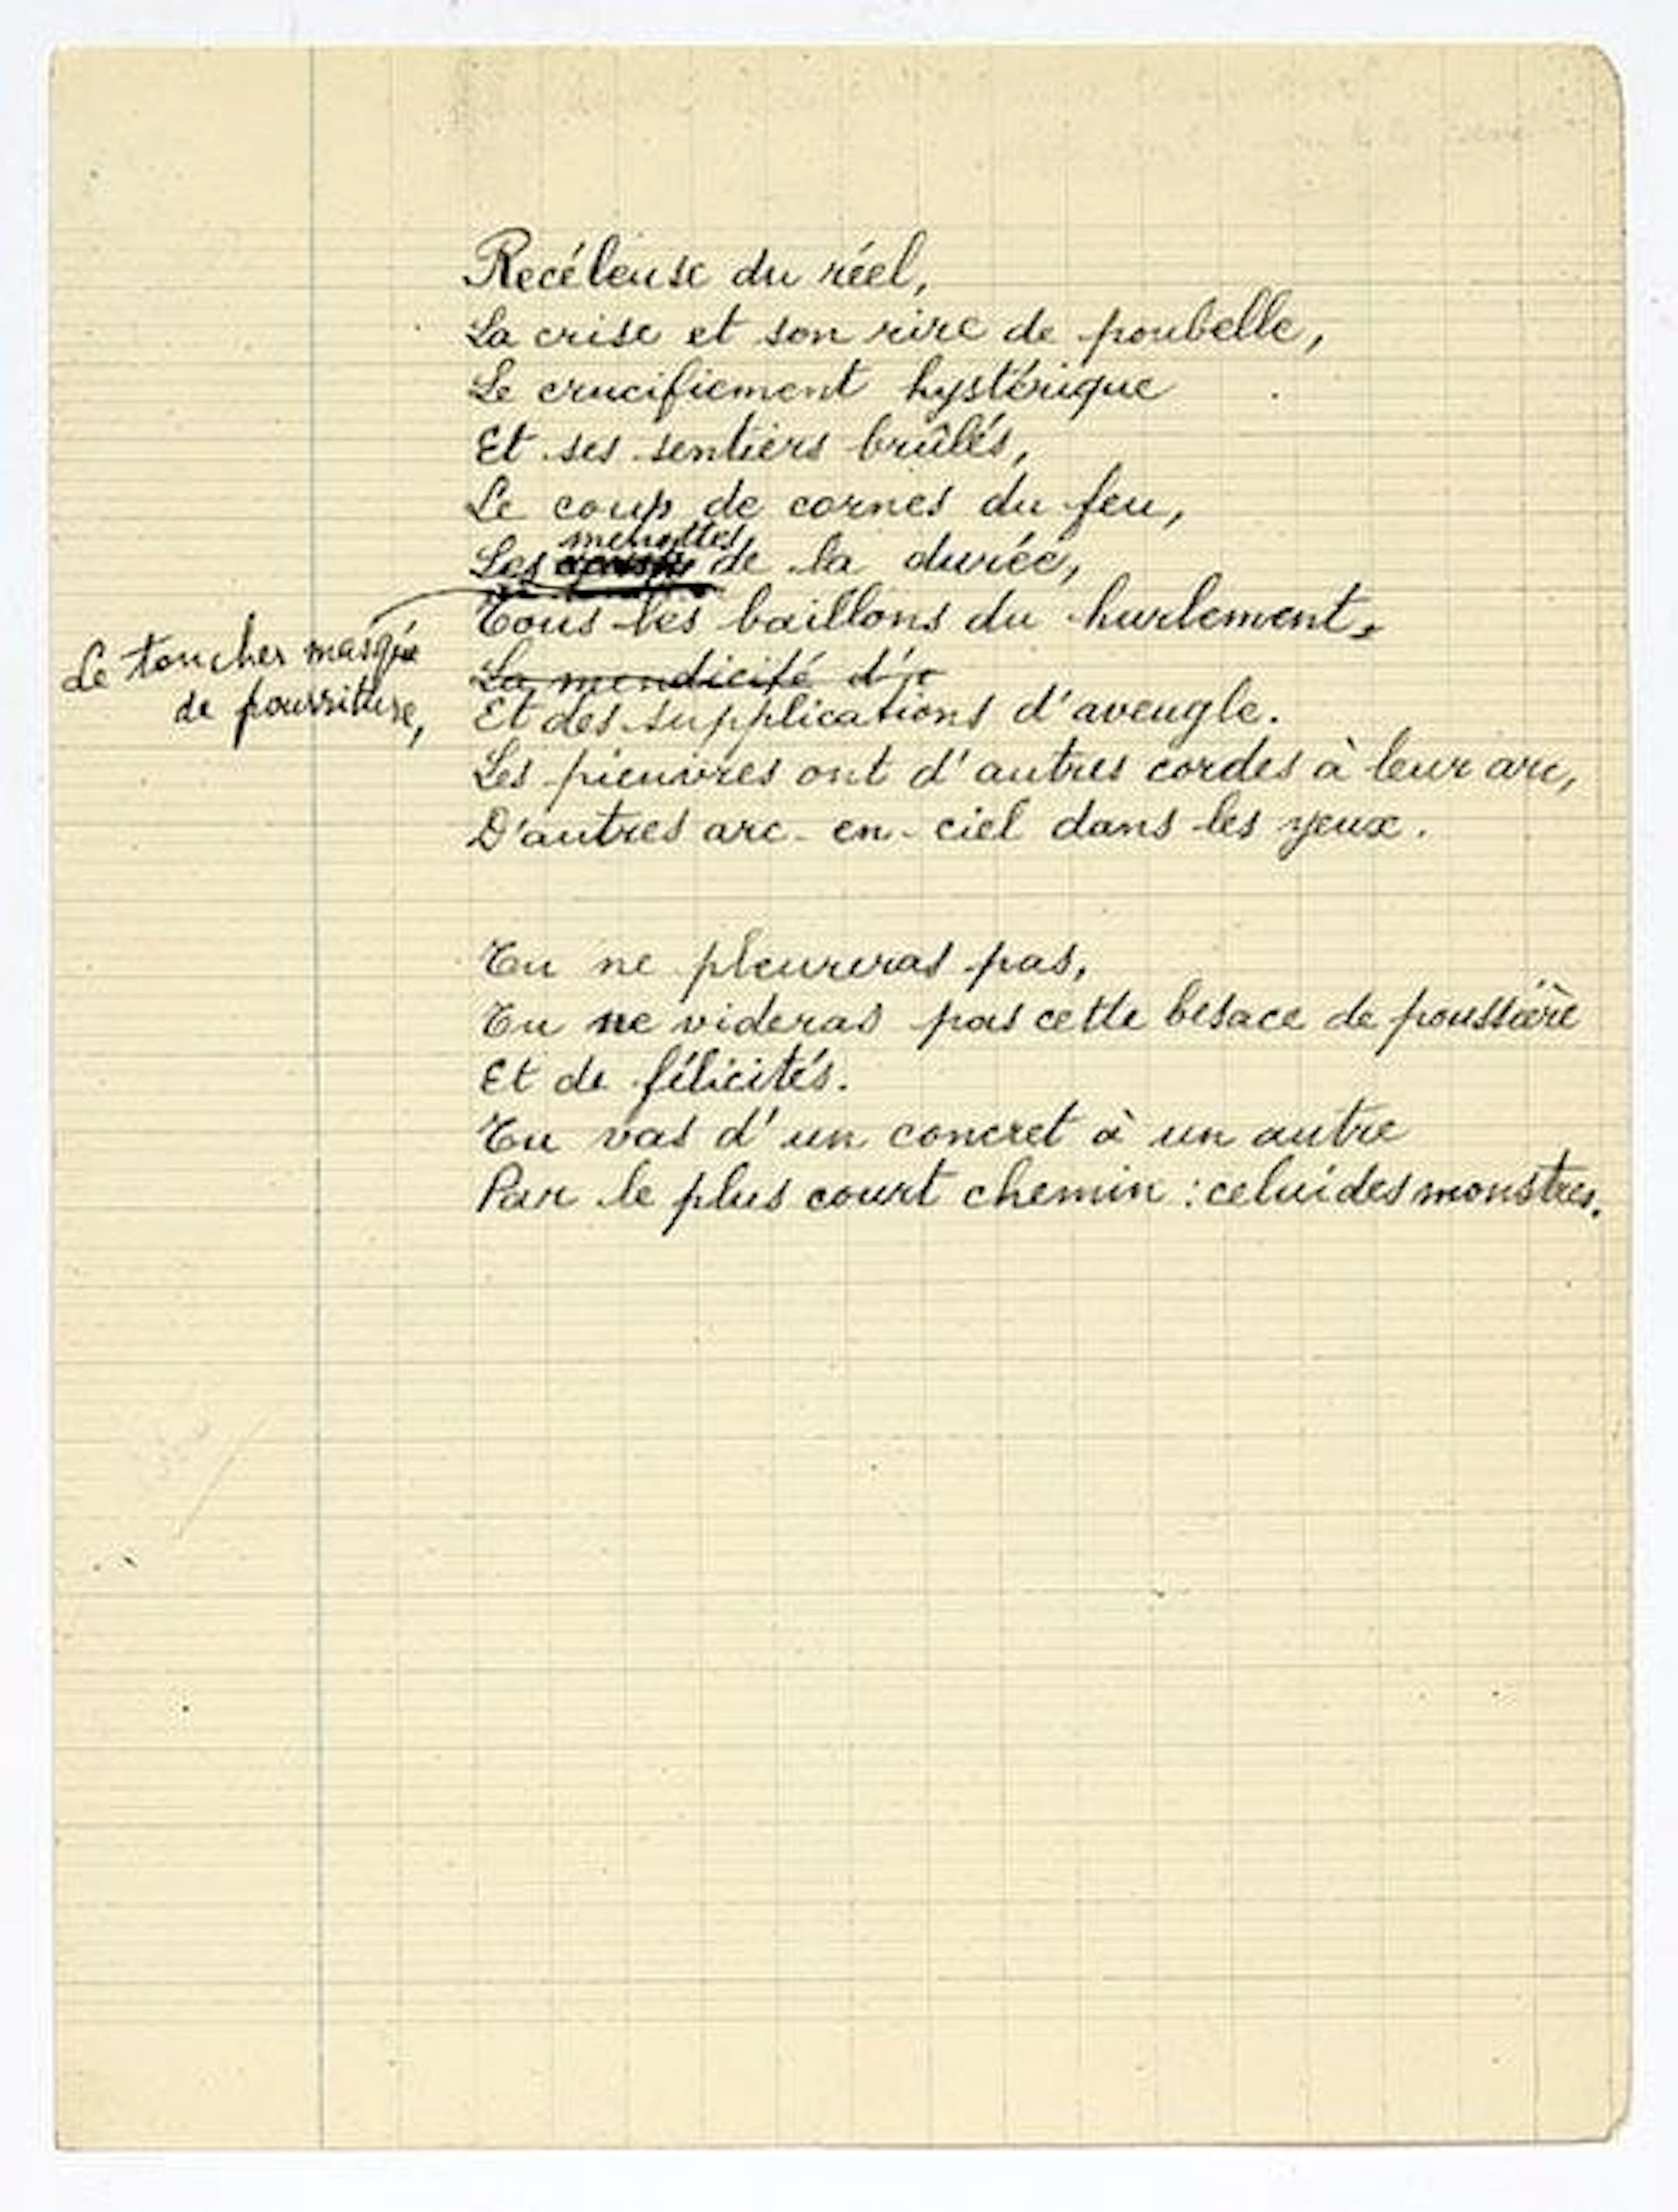 Recéleuse du réel,
La crise et son rire de poubelle,
Le crucifiement hystérique
Et ses sentiers brûlés,
Le coup de cornes du feu,
menottes
Les de la durée,
Le toucher masqué
de pourriture,
Tous les baillons du hurlement,
La mendicité d'
Et des supplications d'aveugle.
Les pieuvres ont d'autres cordes à leur arc,
D'autres arc-en-ciel dans les yeux.
Tu ne pleureras pas,
Tu ne videras pas cette besace de poussière
Et de félicités.
Tu vas d'un concret à un autre
Par le plus court chemin : celui des monstres.